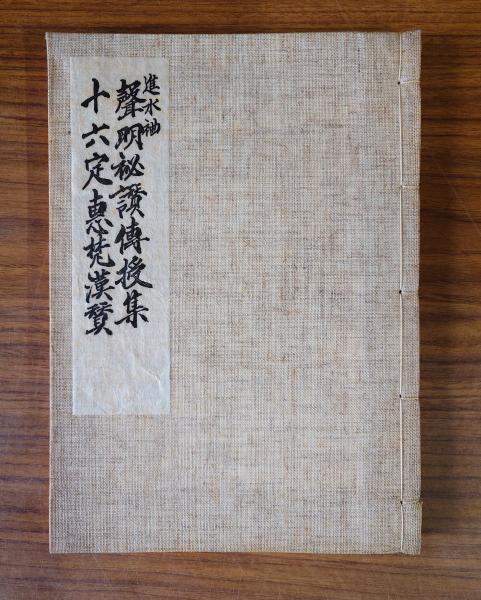 進水袖
聲明祕讃傳授集
十六定惠梵漢賛